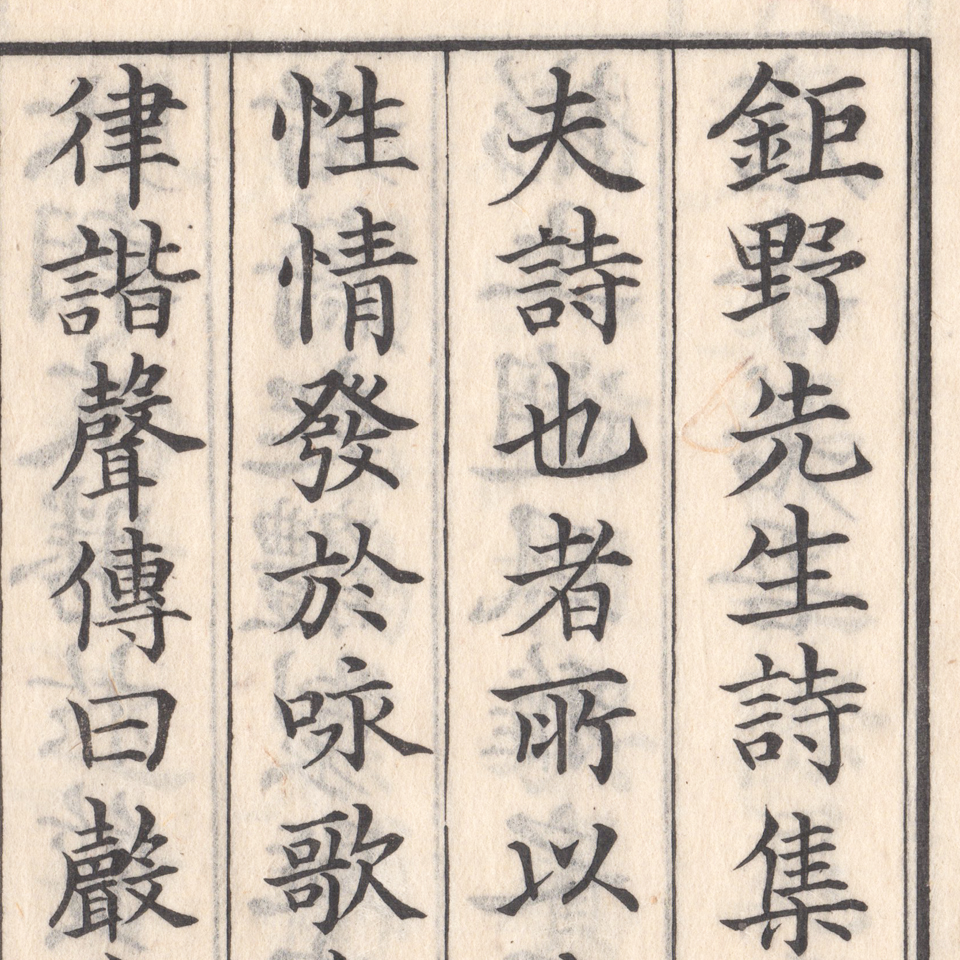 鉅野先生詩集
夫詩也者所以
性情發於咏歌
律諧聲傳曰聲